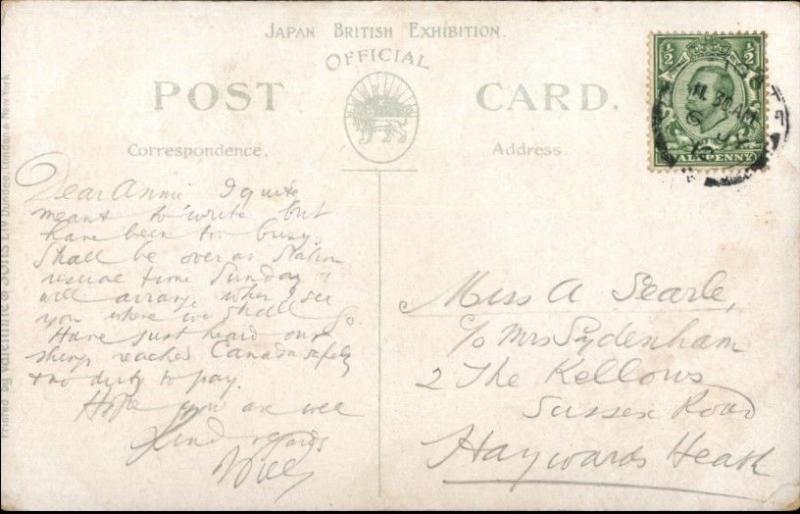 JAPAN BRITISH EXHIBITION.
OFFICIAL
POST CARD.
Correspondence. Address.
½ ½
11.30 AM
HALFPENNY
Dear Annie I quite
meant to write but
have been too busy.
Shall be over as Station
usual time Sunday &
will arrange when I see
you where we shall go.
Have just heard our
things reached Canada safely
& no duty to pay.
Hope you are well
Kind regards
Will
Miss A Searle,
c/o Mrs Sydenham
2 The Kellows
Sussex Road
Haywards Heath
Printed by VALENTINE & SONS LTD Dundee, London & New York